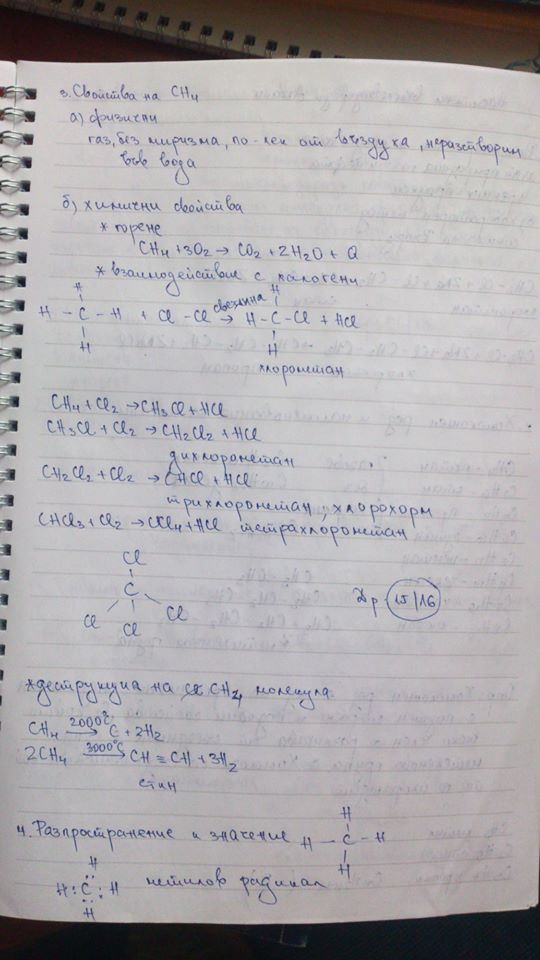 3. Свойства на CH4
а) физични
газ, без миризма, по-лек от въздуха, неразтворим
във вода
б) химични свойства
* горене
CH4 + 3O2 → CO2 + 2H2O + Q
* взаимодействие с халогени
H H
H – C – H + Cl – Cl светлина → H – C – Cl + HCl
H H
хлорметан
CH4 + Cl2 → CH3Cl + HCl
CH3Cl + Cl2 → CH2Cl2 + HCl
дихлорметан
CH2Cl2 + Cl2 → CHCl + HCl
трихлорметан, хлорохорм
CHCl3 + Cl2 → CCl4 + HCl, тетрахлорметан
Cl
C
Cl Cl Cl
Др 15/16
* деструкция на CH4 молекула
CH4 2000°C → C + 2H2
2CH4 3000°C → CH ≡ CH + 3H2
етин
4. Разпространение и значение
H
H – C – H
H
H
H : C : H
H
метилов радикал